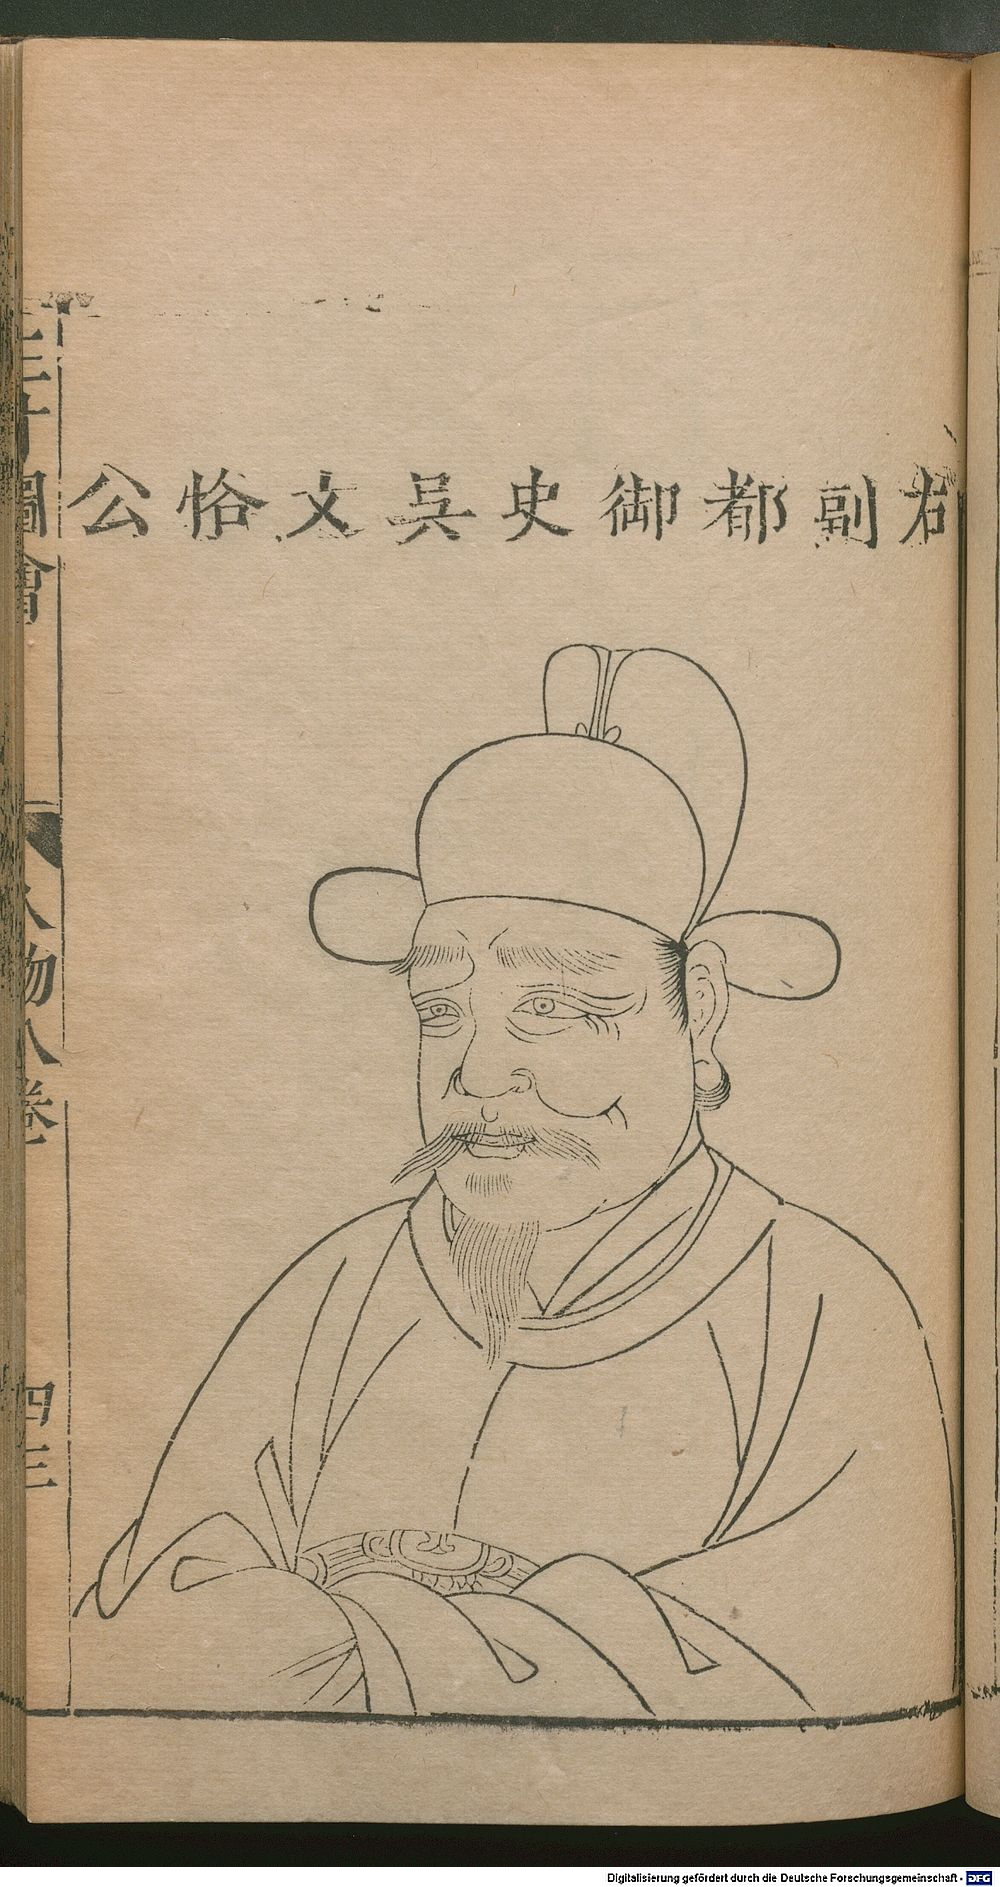 右副都御史吳文恪公
三才圖會
人物八卷
四三
Digitalisierung gefördert durch die Deutsche Forschungsgemeinschaft - DFG